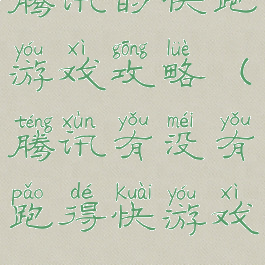 腾讯的快跑
yóu xì gōng lüè
游戏攻略（
téng xùn yǒu méi yǒu
腾讯有没有
pǎo dé kuài yóu xì
跑得快游戏